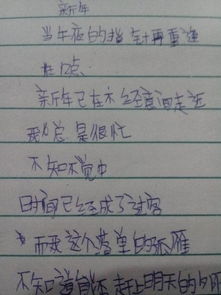 新年
当午夜的指针再重逢
在12点
新年已在不经意间走近
我总是很忙
不知不觉中
时间已经成了过客
而我这个落单的孤雁
不知道自己还赶上明天的夕阳